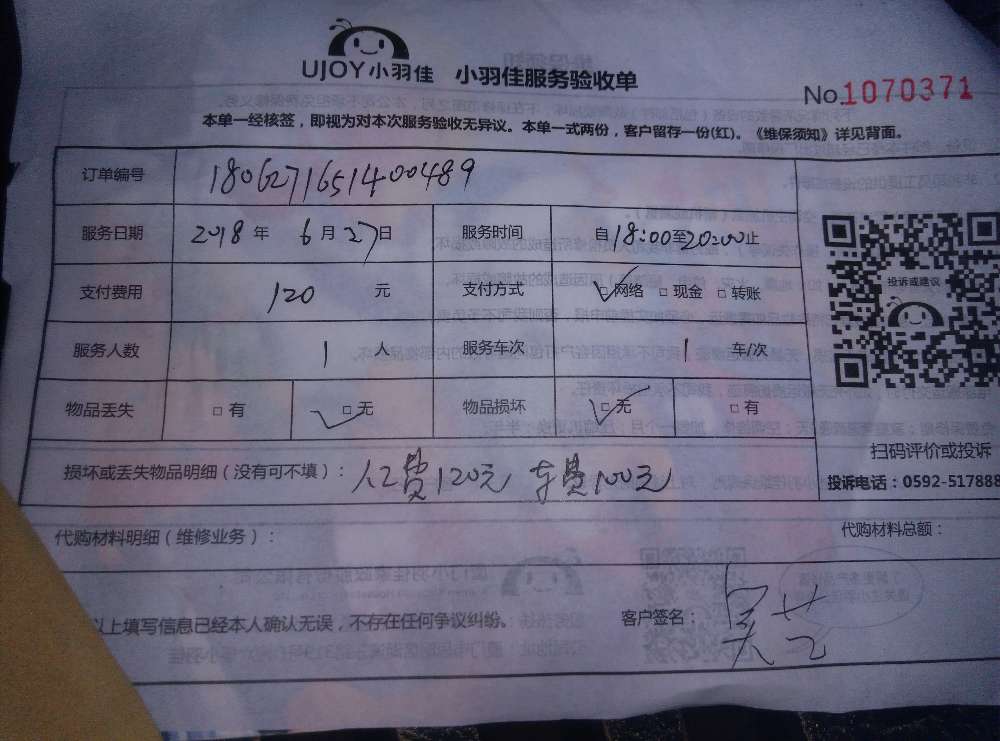 UJOY小羽佳 小羽佳服务验收单
No.1070371
本单一经核签，即视为对本次服务验收无异议。本单一式两份，客户留存一份(红)。《维保须知》详见背面。
订单编号 1806271651400489
服务日期 2018年 6月27日 服务时间 自18:00至20:00止
支付费用 120 元 支付方式 □网络 □现金 □转账
投诉或建议
服务人数 1 人 服务车次 1 车/次
物品丢失 □有 □无 物品损坏 □无 □有
扫码评价或投诉
损坏或丢失物品明细（没有可不填）： 人工费120元 车费100元
投诉电话：0592-517888
代购材料明细（维修业务）： 代购材料总额：
以上填写信息已经本人确认无误，不存在任何争议纠纷。 客户签名：